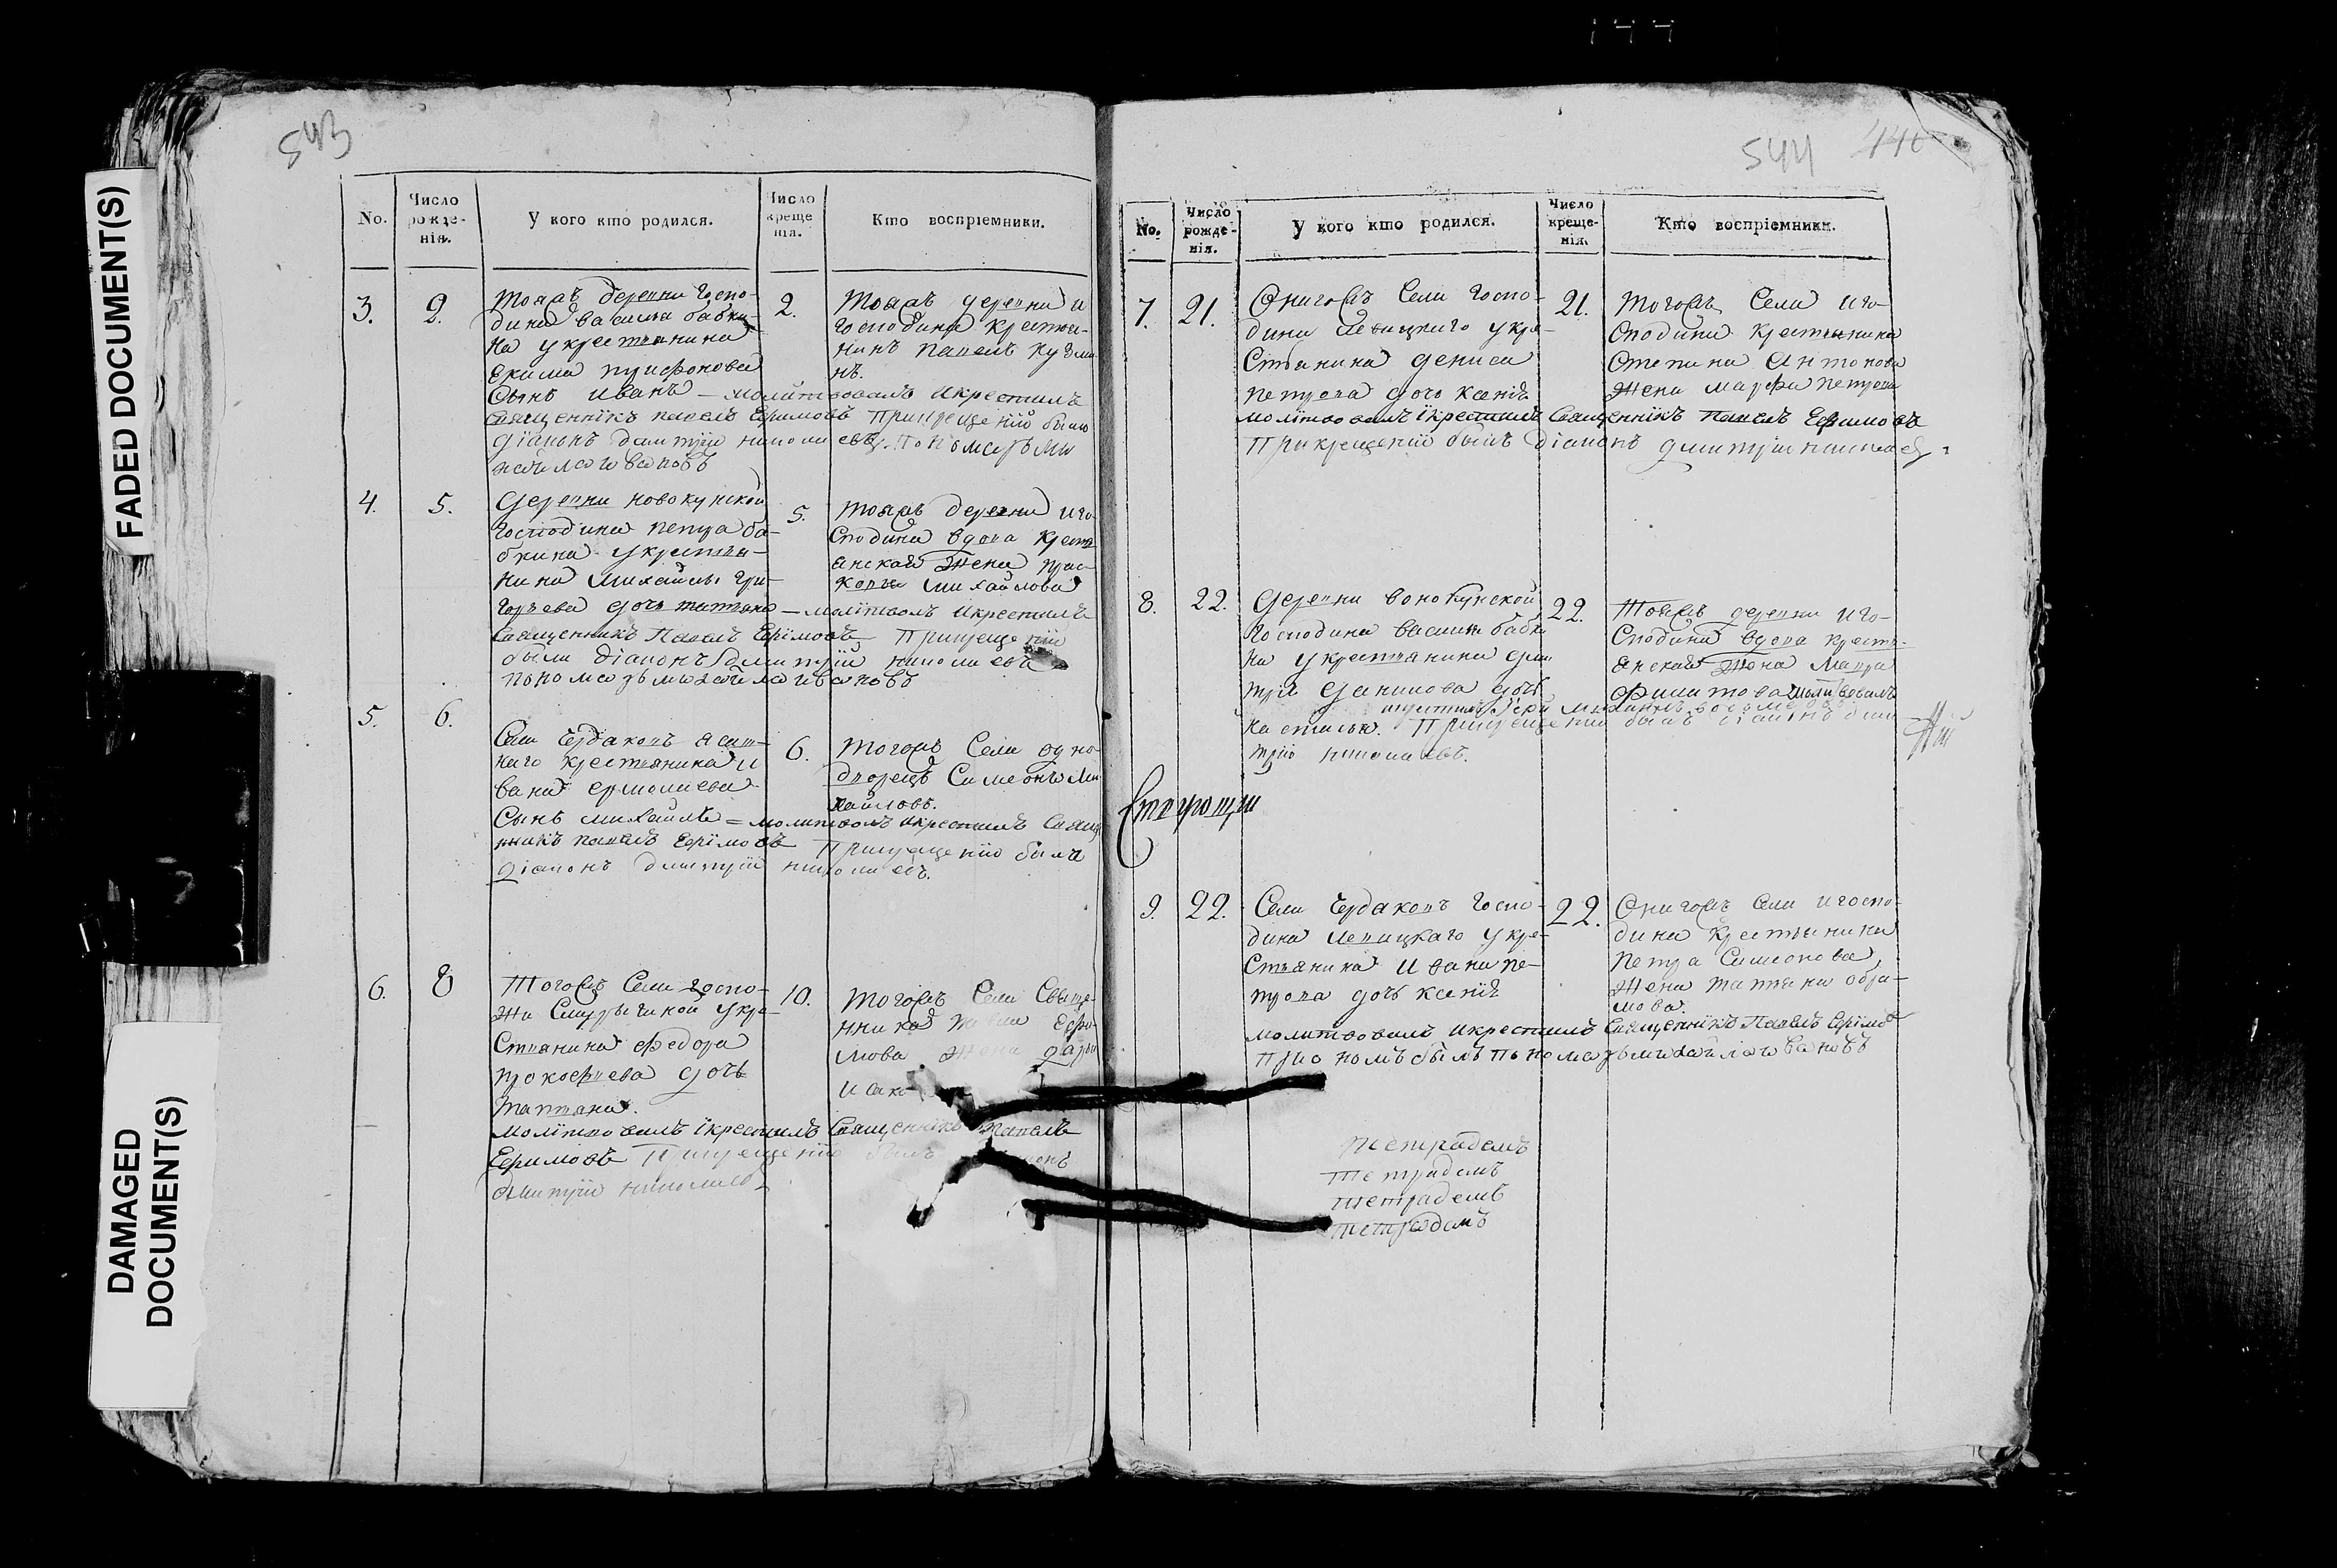 FADED DOCUMENT(S)
DAMAGED
DOCUMENT(S)
543
No.
Число
рожде-
нія.
У кого кто родился.
Число
креще
нія.
Кто воспріемники.
3.
2.
Тояжъ деревни Госпо-
дина василья бабки-
на укрестьянина
Екима трифонова
Сынъ иванъ – молитвовалъ икрестилъ
Священнікъ павелъ Ефимовъ При крещеніи были
діаконъ дмитрій николаевъ. Пономарь ми
хайла ивановъ
2.
Тояжъ деревни и
Господина крестья-
нинъ павелъ кузми
нъ.
4.
5.
Деревни новокунской
Господина петра ба-
бкина укрестья-
нина михайлы гри-
горьева дочь татьяна – молитвовалъ икрестилъ
Священникъ Павелъ Ефимовъ При крещеніи
были діаконъ дмитрій николаевъ
пономарь михайла ивановъ
5.
Тояжъ деревни иго-
Сподина вдова крестя-
анская жена прас-
ковья михайлова
5.
6.
Села
крестьянина и
вана ермолаева
Сынъ михайла = молитвовалъ икрестилъ Свящ
нникъ павелъ Ефимовъ При крещеніи былъ
діаконъ дмитрій николаевъ.
6.
Тогожъ Села одно-
дворецъ Симеонъ Ми
хайловъ.
6.
8
Тогожъ Села госпо-
жи укре-
Стьянина федора
прокофьева дочь
татьяна.
молитвовалъ ікрестилъ Священнікъ Павелъ
Ефимовъ При крещеніи былъ
дмитрій николаев
10.
Тогожъ Села Свяще-
нника павла Ефи-
мова жена дарья
исак
544
No.
Число
рожде-
нія.
У кого кто родился.
Число
креще-
нія.
Кто воспріемники.
7.
21.
Онагожъ Села Госпо-
дина Левицкаго укре-
Стьянина дениса
петрова дочь ксенія
молитвовалъ ікрестилъ Священнікъ Павелъ Ефимовъ
При крещеніи былъ діаконъ дмитрій николаевъ
21.
Тогожъ Села иго-
Сподина крестьянина
Степана Антонова
жена марфа петрова
8.
22.
Деревни
Господина василья бабки
на укрестьянина дми
трія данилова дочь
При крещеніи былъ діаконъ дми
трій николаевъ.
22.
Тояжъ деревни иго-
Сподина вдова кресть-
анская жена мавра
филатова молитвовалъ
9.
22.
Села Госпо-
дина Левицкаго укре-
Стьянина ивана пе-
трова дочь ксенія
молитвовалъ икрестилъ Священнікъ Павелъ Ефимовъ
при ономъ былъ пономарь михайла ивановъ
22.
Онагожъ Села игоспо-
дина крестьянина
петра Симеонова,
жена татьяна
мова.
тетрадемъ
тетрадемъ
тетрадемъ
тетрадемъ